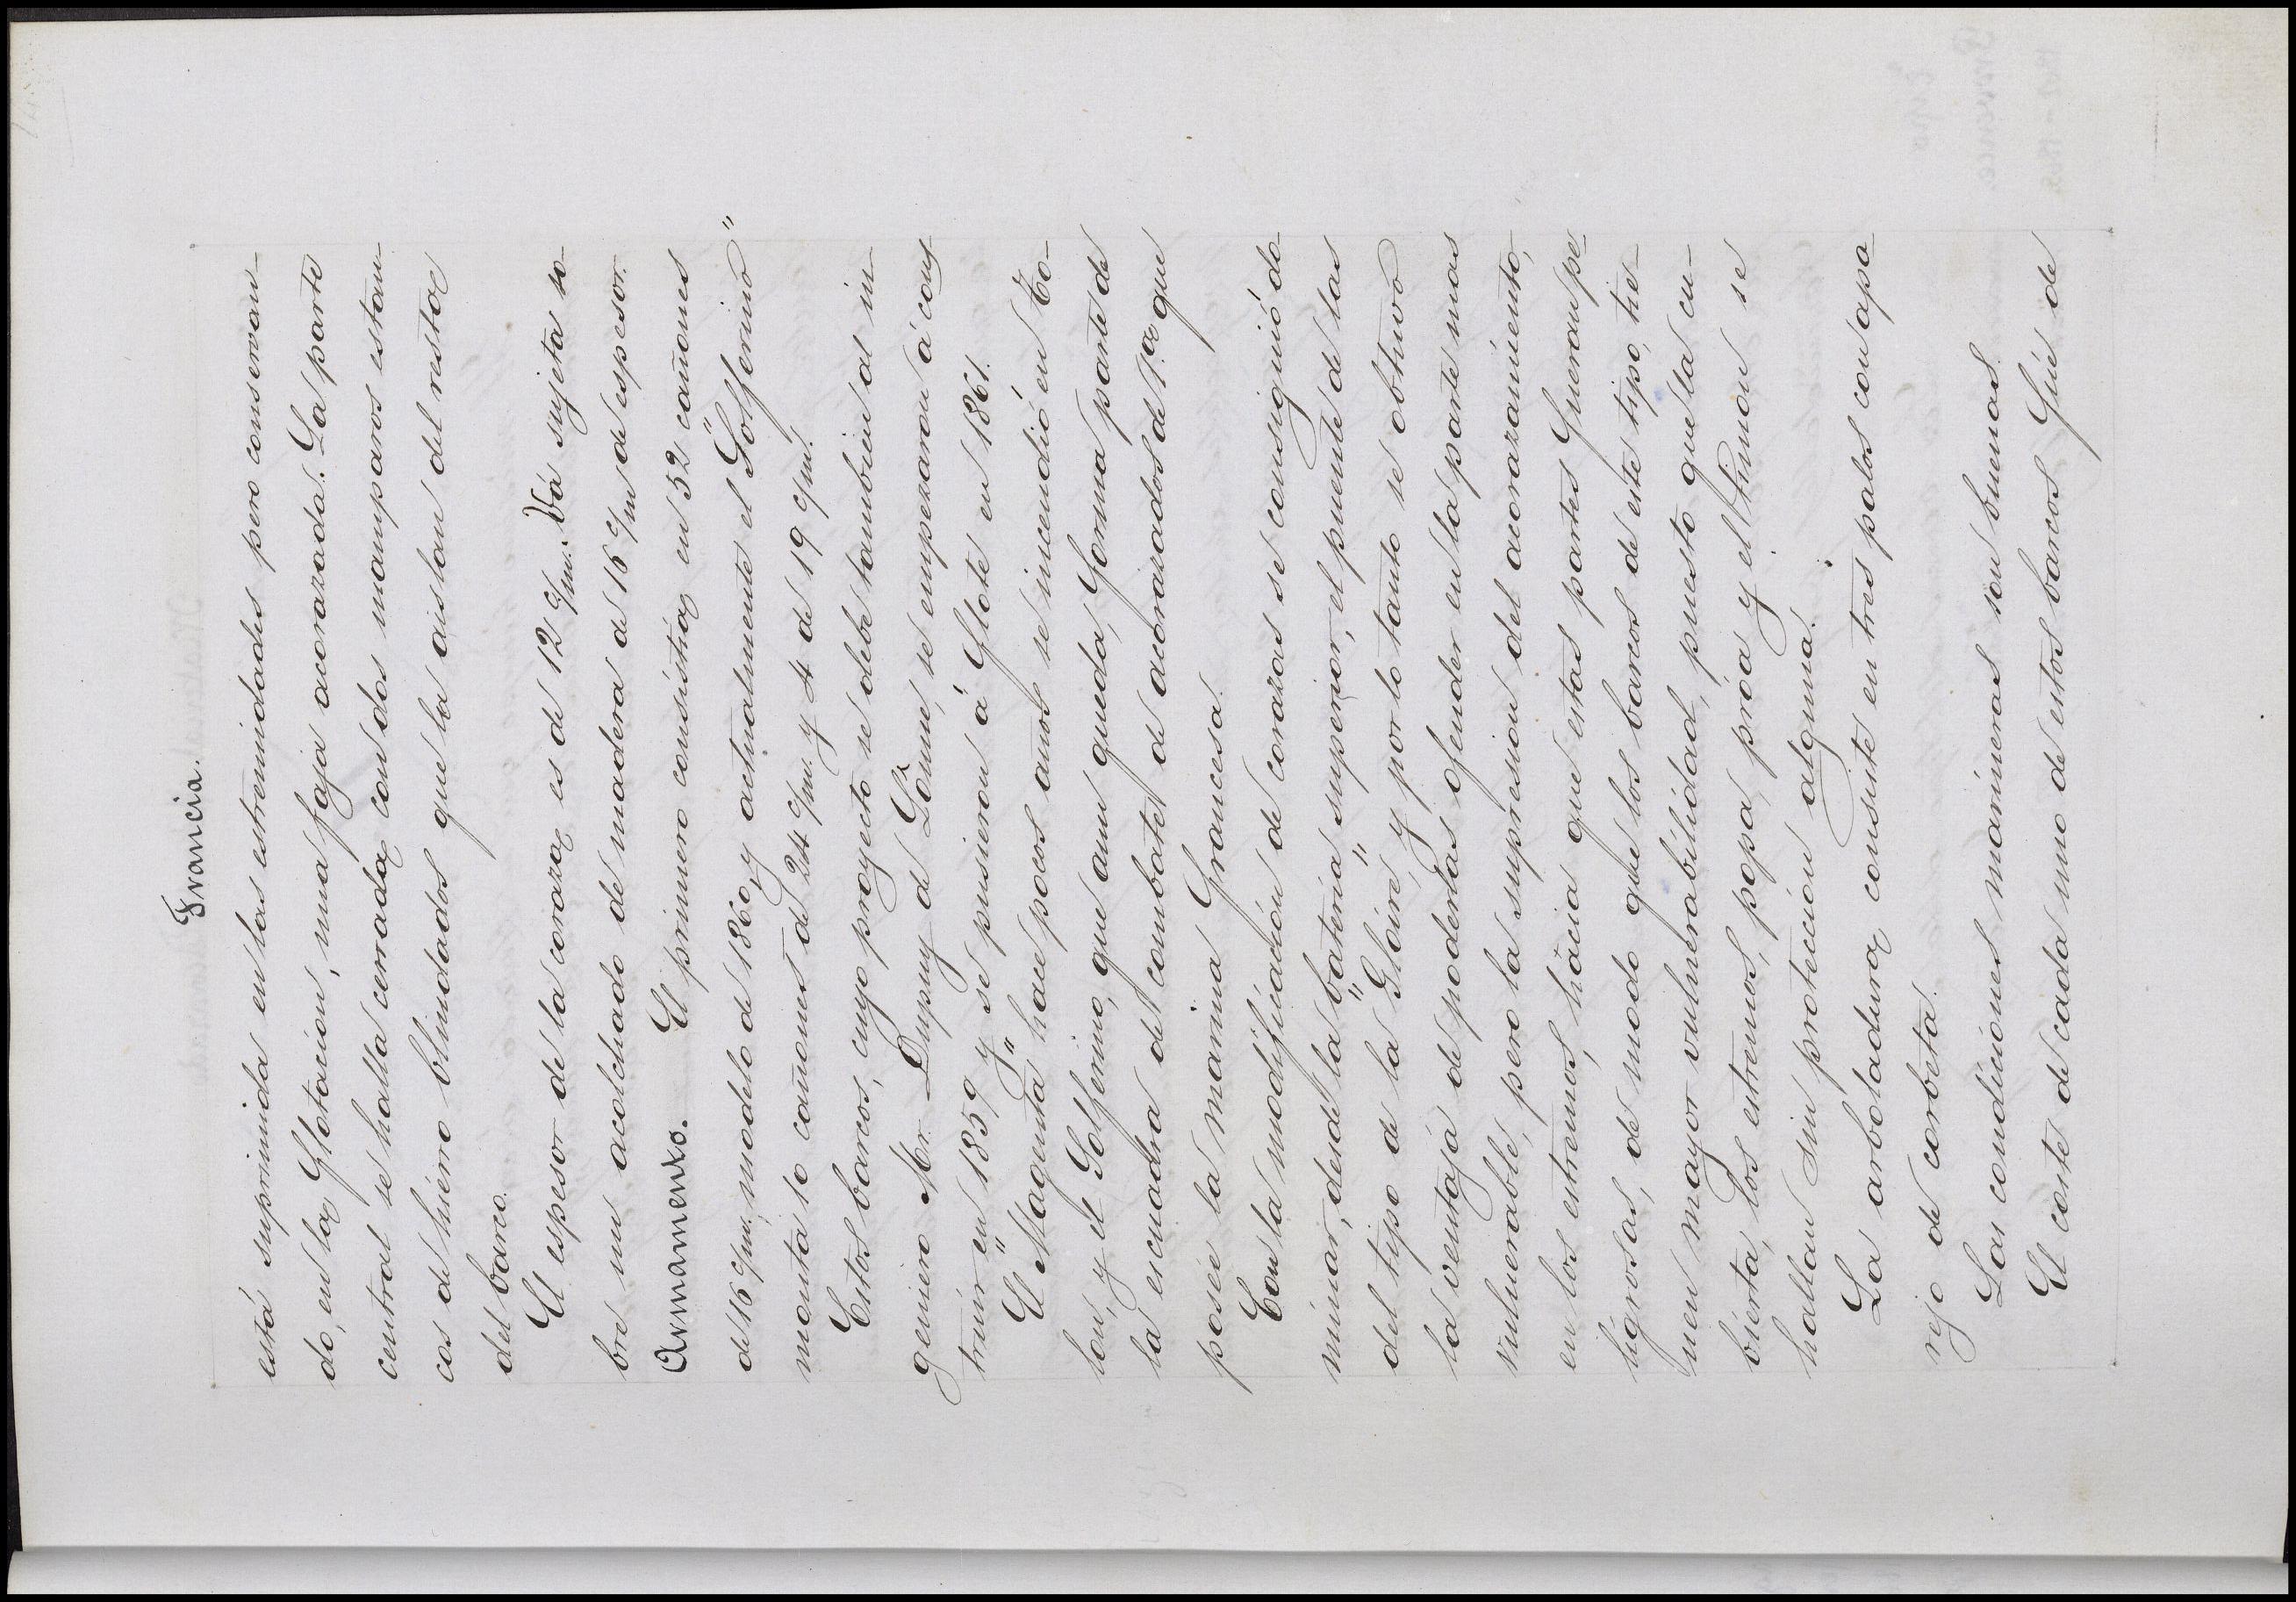 Francia.
está suprimida en las estremidades pero conservan-
do, en la flotacion, una faja acorazada. La parte
central se halla cerrada con dos mamparos estan-
cos de hierro blindados que la aislan del resto
del barco.
El espesor de la coraza es de 12 c/m. Vá sujeta so-
bre un acolchado de madera de 16 c/m de espesor.
Armamento. El primero consistia en 52 cañones
de 16 c/m, modelo de 1860, y actualmente el "Solferino"
monta 10 cañones de 24 c/m. y 4 de 19 c/m.
Estos barcos, cuyo proyecto se debe tambien al in-
geniero Mr. Dupuy de Lôme, se empezaron á cons-
truir en 1859 y se pusieron á flote en 1861.
El "Magenta" hace pocos años se incendió en To-
lon, y el Solferino, que aun queda, forma parte de
la escuadra de combate de acorazados de 1.ª que
posée la marina francesa.
Con la modificación de corazas se consiguió do-
minar, desde la batería superior, el puente de las
del tipo de la "Gloire", y por lo tanto se obtuvo
la ventaja de poderlas ofender en la parte mas
vulnerable, pero la supresion del acorazamiento,
en los estremos, hácia que estas partes fueran pe-
ligrosas, de modo que los barcos de este tipo, tie-
nen mayor vulnerabilidad, puesto que la cu-
bierta, los estremos, popa, próa y el timon se
hallan sin proteccion alguna.
La arboladura consiste en tres palos con apa-
rejo de corbeta.
Las condiciones marineras son buenas.
El coste de cada uno de estos barcos fué de